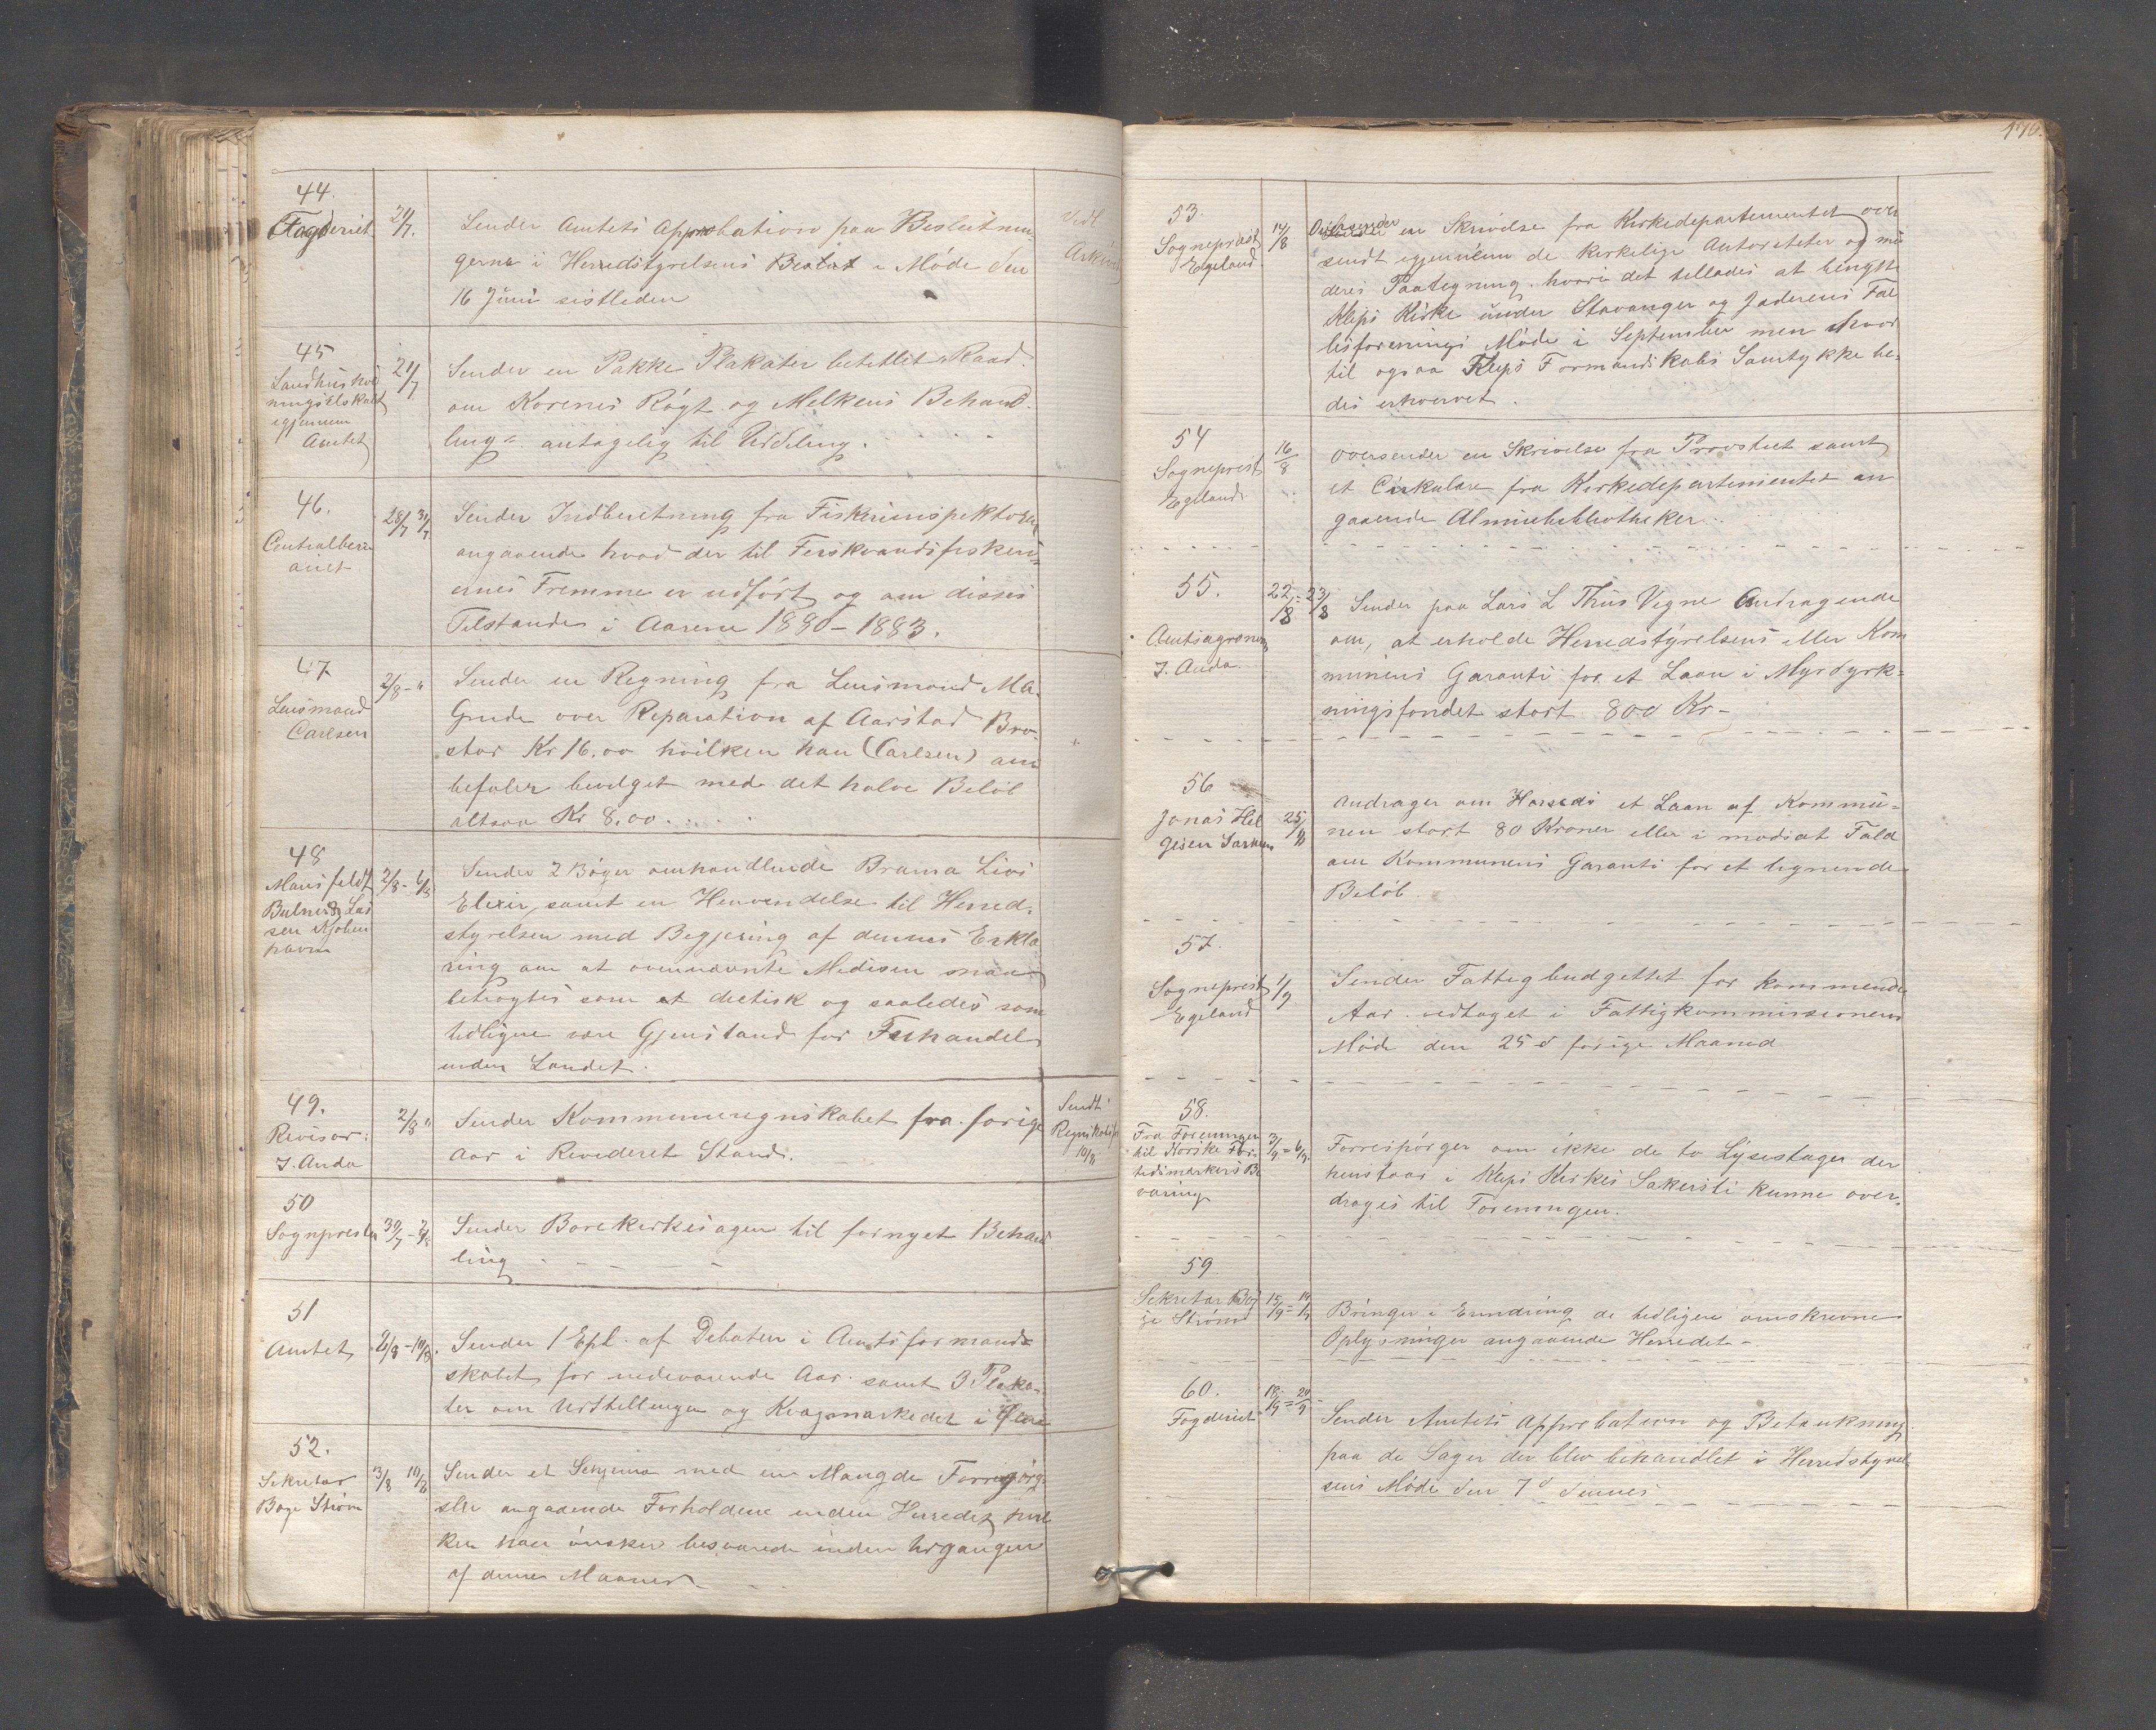 44.
Fogderiet
21/7.
Sender Amtets Approbation paa Beslutnin-
gerne i Herredstyrelsens Møde den
16 Juni sistleden
Vedl
Arkivet
45
Landhushold
ningselskabet
igjennem
Amtet
21/7
Sender en Pakke Plakater betitlet "Raad
om Korenes Røgt og Melkens Behand-
ling" antagelig til Uddeling.
46.
Centralbery
auet
28/7 31/7
Sender Indberetning fra Fiskeriinspektøren
angaaende hvad der til Ferskvandsfiskeri-
ernes Fremme er udført og om disses
Tilstande i Aarene 1880 - 1883.
47
Lensmand
Carlsen
2/8 - "
Sender en Regning fra Lensmand Ma.
Grude over Reparation af Aarstad Bro
stor Kr 16.00 hvilken han (Carlsen) an
befaler bevilget med det halve Beløb
altsaa Kr 8.00
48
Mansfeldt
Bulner & Las
sen Kjøben
havn
2/8 - 6/8
Sender 2 Bøger omhandlende Brama Livs
Elixir, samt en Henvendelse til Herred-
styrelsen med Begjering af dennes Erklæ
ring om at ovennævnte Medisin maa
betragtes som et dietisk og saaledes som
tidligere være Gjenstand for Frihandel
inden Landet.
49.
Revisor:
J. Anda
2/8 "
Sender Kommuneregnskabet fra forige
Aar i Revideret Stand.
Sendt
10/8
50
Sognpresten
30/7 - 2/8
Sender Borekirkesagen til fornyet Behand
ling
51
Amtet
2/8 - 10/8.
Sender 1 Expl. af Debatten i Amtsformand-
skabet for nedevarende Aar samt 3 Plaka-
ter om Utstillingen og Kvagmarkedet i
52.
Sekretær
Boye Strøm
3/8 10/8
Sender et Schjema med en Mangde Forrespørg-
sler angaaende Forholdene inden Herredet hvil
ken han ønsker besvarede inden Udgangen
af denne Maaned
170.
53.
Sogneprest
Egeland
14/8
Oversender en Skrivelse fra Kirkedepartementet over
sendt igjennem de kirkelige Autoriteter og med
deres Paategning, hvori det tillades at benytte
Kleps Kirke under Stavanger og Jaderens Fæl
lesforenings Møde i September men hvor
til ogsaa Kleps Formandskabs Samtykke be-
des erhvervet.
54
Sogneprest
Egeland
16/8
Oversender en Skrivelse fra Provstiet samt
et Cirkulære fra Kirkedepartementet an
gaaende Almuebibliotheker.
55.
Amtsagronom
J. Anda.
22/8 = 23/8
Sender paa Lars L Thus Vegne Andragende
om, at erholde Herredstyrelsens eller Kom
munens Garanti for et Laan i Myrdyrk-
ningsfondet stort 800 Kr -
56
Jonas Hel
gesen
25/8
Andrager om et Laan af Kommu-
nen stort 80 Kroner eller i modsat Fald
om Kommunens Garanti for et lignende
Beløb.
57.
Sogneprest
Egeland
1/9
Sender Fattigbudgettet for kommende
Aar vedtaget i Fattigkommissionens
Møde den 25d forige Maaned
58.
Fra Foreningen
til Norske For-
tidsmærkers Be
varing
3/9 = 6/9.
Forrespørger om ikke de to Lysestager der
henstaar i Kleps Kirkes Sakersti kunne over-
drages til Foreningen.
59
Sekretær Boy
ge Strøm
15/9 = 19/9
Bringer i Erindring de tidligere omskrevne
Oplysninger angaaende Herredet -
60.
Fogderiet
18/9 = 20/9
Sender Amtets Approbation og Betænkning
paa de Sager der blev behandlet i Herredstyrel
sens Møde den 7d dennes